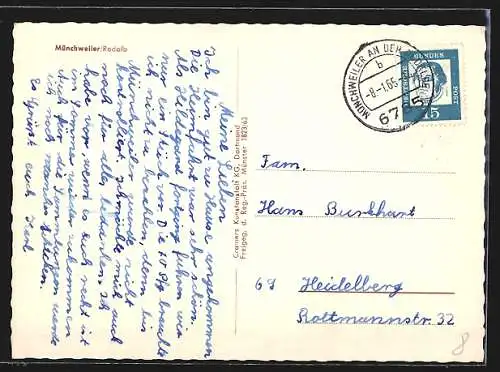 Münchweiler/Rodalb
Meine Lieben
Ich bin gut zu Hause angekommen
Die Heimfahrt war sehr schön.
Als Hildegard fortging fuhren wir
nur ein Stück vor. Die 10 Pfg brauchte
ich nicht zu bezahlen, denn bis
Münchweiler wurde nicht
kontrolliert. Ich möchte mich auch
noch für alles bedanken. Ich
habe vor wenn es euch recht ist
im Sommer wieder zu kommen
Auch für die
ich noch
Es grüßt euch Karl
Cramers Kunstanstalt KG, Dortmund
Freigeg. d. Reg.-Präs. Münster 1823/63
MÜNCHWEILER AN DER
b
-8-1.65
675
DEUTSCHE BUNDESPOST
15
Fam.
Hans Burkhart
69 Heidelberg
Roltmannstr. 32
8